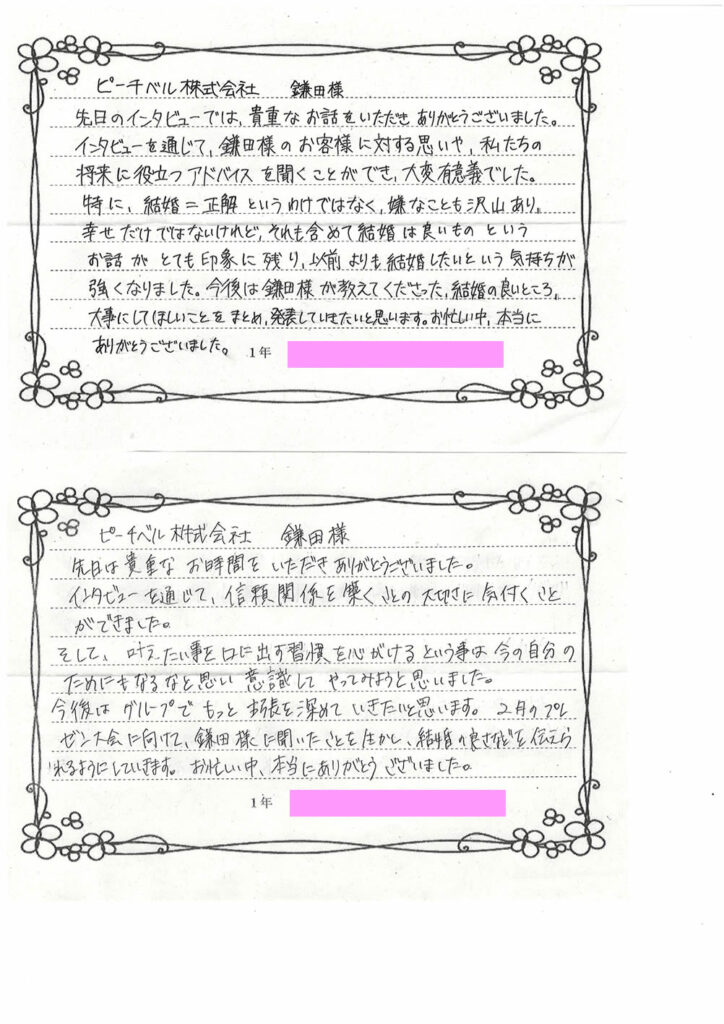 ピーチベル株式会社 鎌田様
先日のインタビューでは,貴重なお話をいただきありがとうございました。
インタビューを通じて,鎌田様のお客様に対する思いや,私たちの
将来に役立つアドバイスを聞くことができ,大変有意義でした。
特に、結婚=正解というわけではなく,嫌なことも沢山あり,
幸せだけではないけれど,それも含めて結婚は良いものという
お話がとても印象に残り,以前よりも結婚したいという気持ちが
強くなりました。今後は鎌田様が教えてくださった,結婚の良いところ,
大事にしてほしいことをまとめ,発表していきたいと思います。お忙しい中,本当に
ありがとうございました。 1年
ピーチベル株式会社 鎌田様
先日は貴重なお時間をいただきありがとうございました。
インタビューを通じて、信頼関係を築くことの大切さに気付くこと
ができました。
そして、叶えたい事を口に出す習慣を心がけるという事は今の自分の
ためにもなるなと思い意識してやってみようと思いました。
今後はグループでもっと主張を深めていきたいと思います。2月のプレ
ゼン大会に向けて、鎌田様に聞いたことを生かし、結婚の良さなどを伝えら
れるようにしていきます。お忙しい中、本当にありがとうございました。
1年